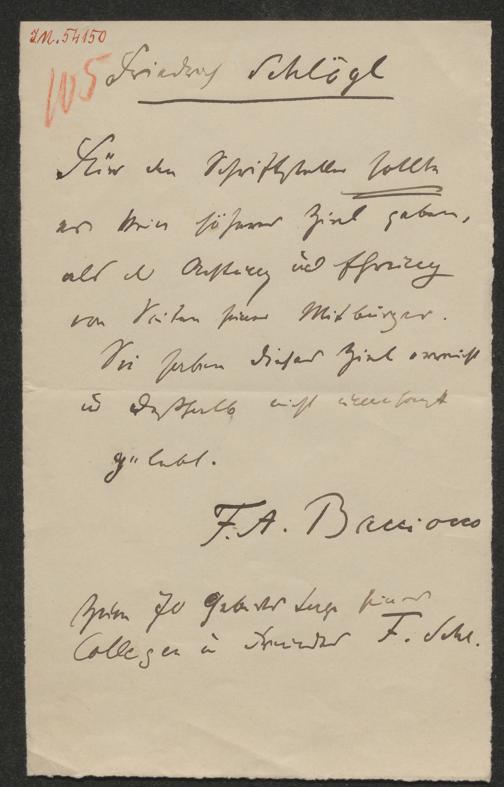 J.N. 54150
105
Friedrich Schlögl
Für den Schriftsteller sollte
es kein höheres Ziel geben,
als die Achtung und Ehrung
von Seiten seiner Mitbürger.
Sie haben dieses Ziel erreicht
u deßhalb nicht umsonst
gelebt.
F. A. Bacciocco
Zum 70 Geburtstage seines
Collegen u Freundes F. Schl.